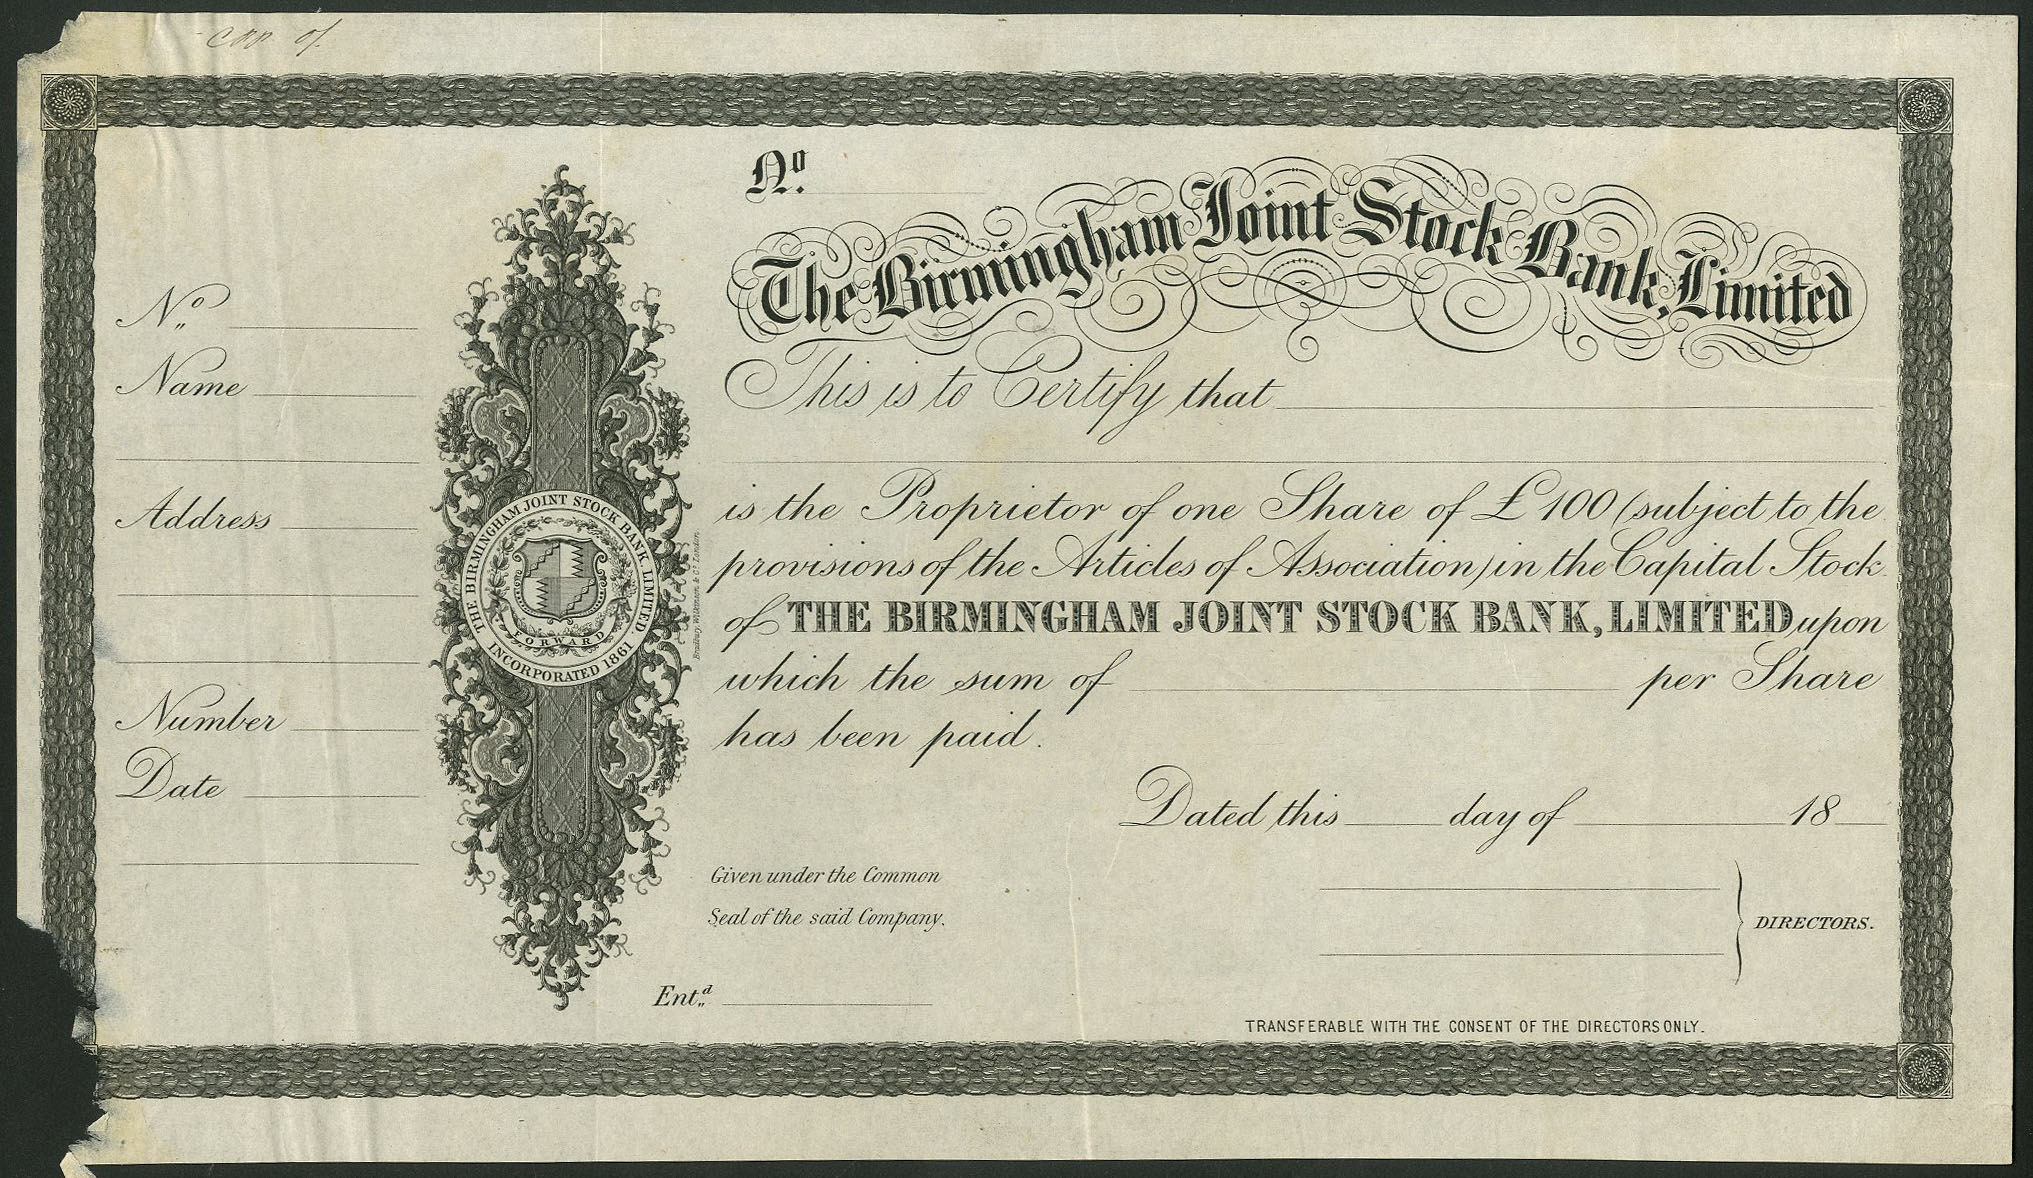 Nº
The Birmingham Joint Stock Bank, Limited
This is to Certify that
is the Proprietor of one Share of £100 (subject to the
provisions of the Articles of Association) in the Capital Stock
of THE BIRMINGHAM JOINT STOCK BANK, LIMITED upon
which the sum of per Share
has been paid.
Dated this day of 18
Given under the Common
Seal of the said Company.
DIRECTORS.
Ent.d
TRANSFERABLE WITH THE CONSENT OF THE DIRECTORS ONLY.
Nº
Name
Address
Number
Date
THE BIRMINGHAM JOINT STOCK BANK, LIMITED.
FORWARD
INCORPORATED 1861
Bradbury, Wilkinson, & Co. London.